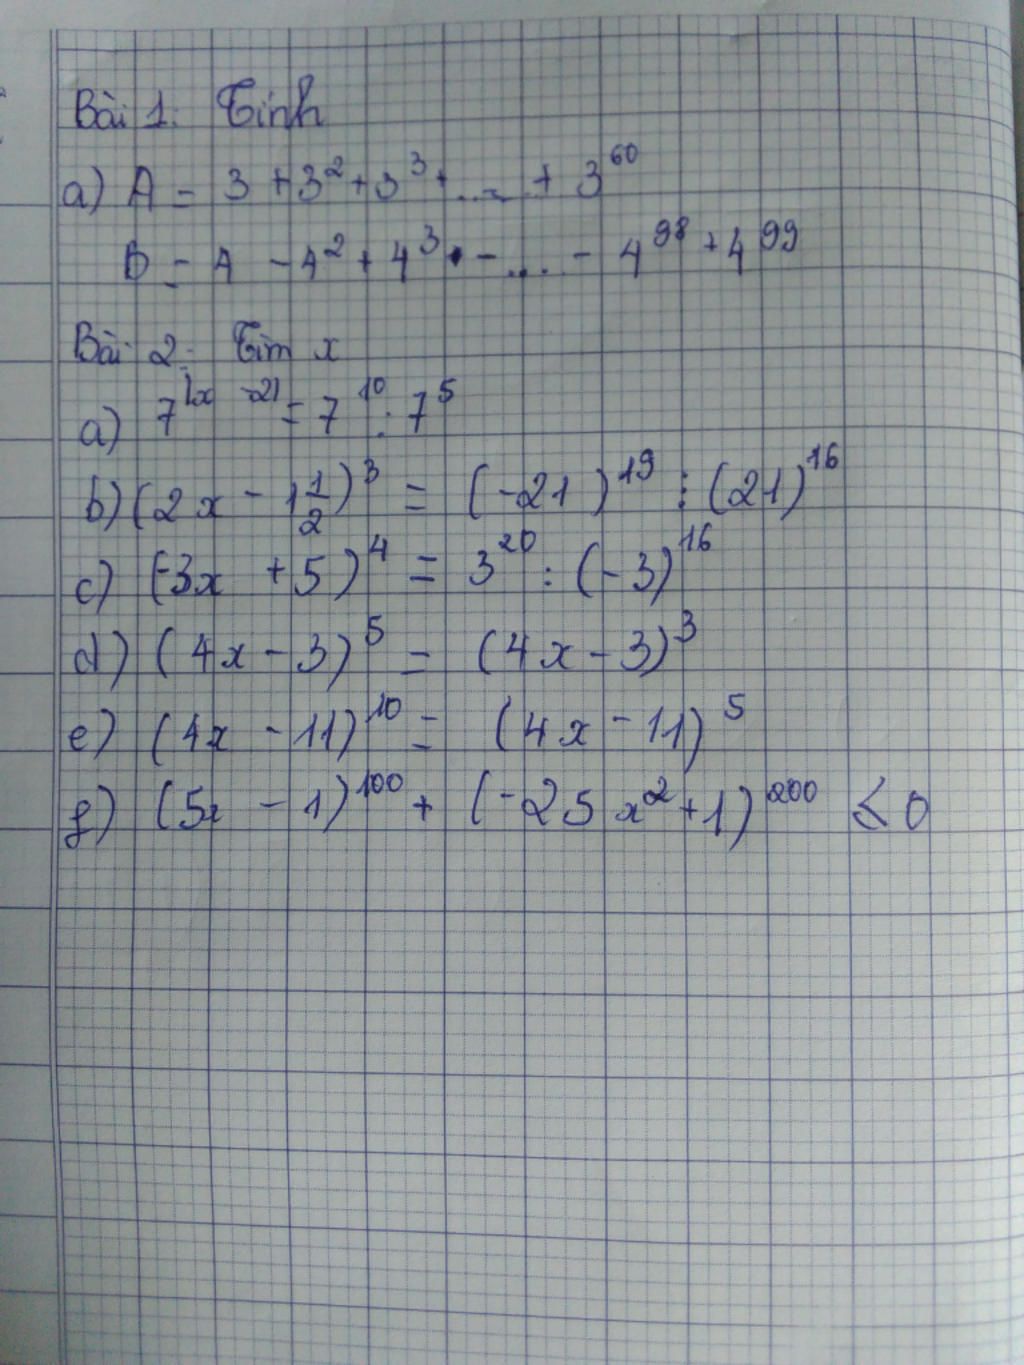 Bài 1: Tính
a) A = 3 + 3² + 3³ + ..... + 3⁶⁰
B = 4 - 4² + 4³ - .... - 4⁹⁸ + 4⁹⁹
Bài 2: Tìm x
a) 7^|x - 2| = 7¹⁰ : 7⁵
b) (2x - 1 1/2)³ = (-21)¹⁹ : (21)¹⁶
c) (-3x + 5)⁴ = 3²⁰ : (-3)¹⁶
d) (4x - 3)⁵ = (4x - 3)³
e) (4x - 11)¹⁰ = (4x - 11)⁵
f) (5x - 1)¹⁰⁰ + (-25x² + 1)²⁰⁰ ≤ 0